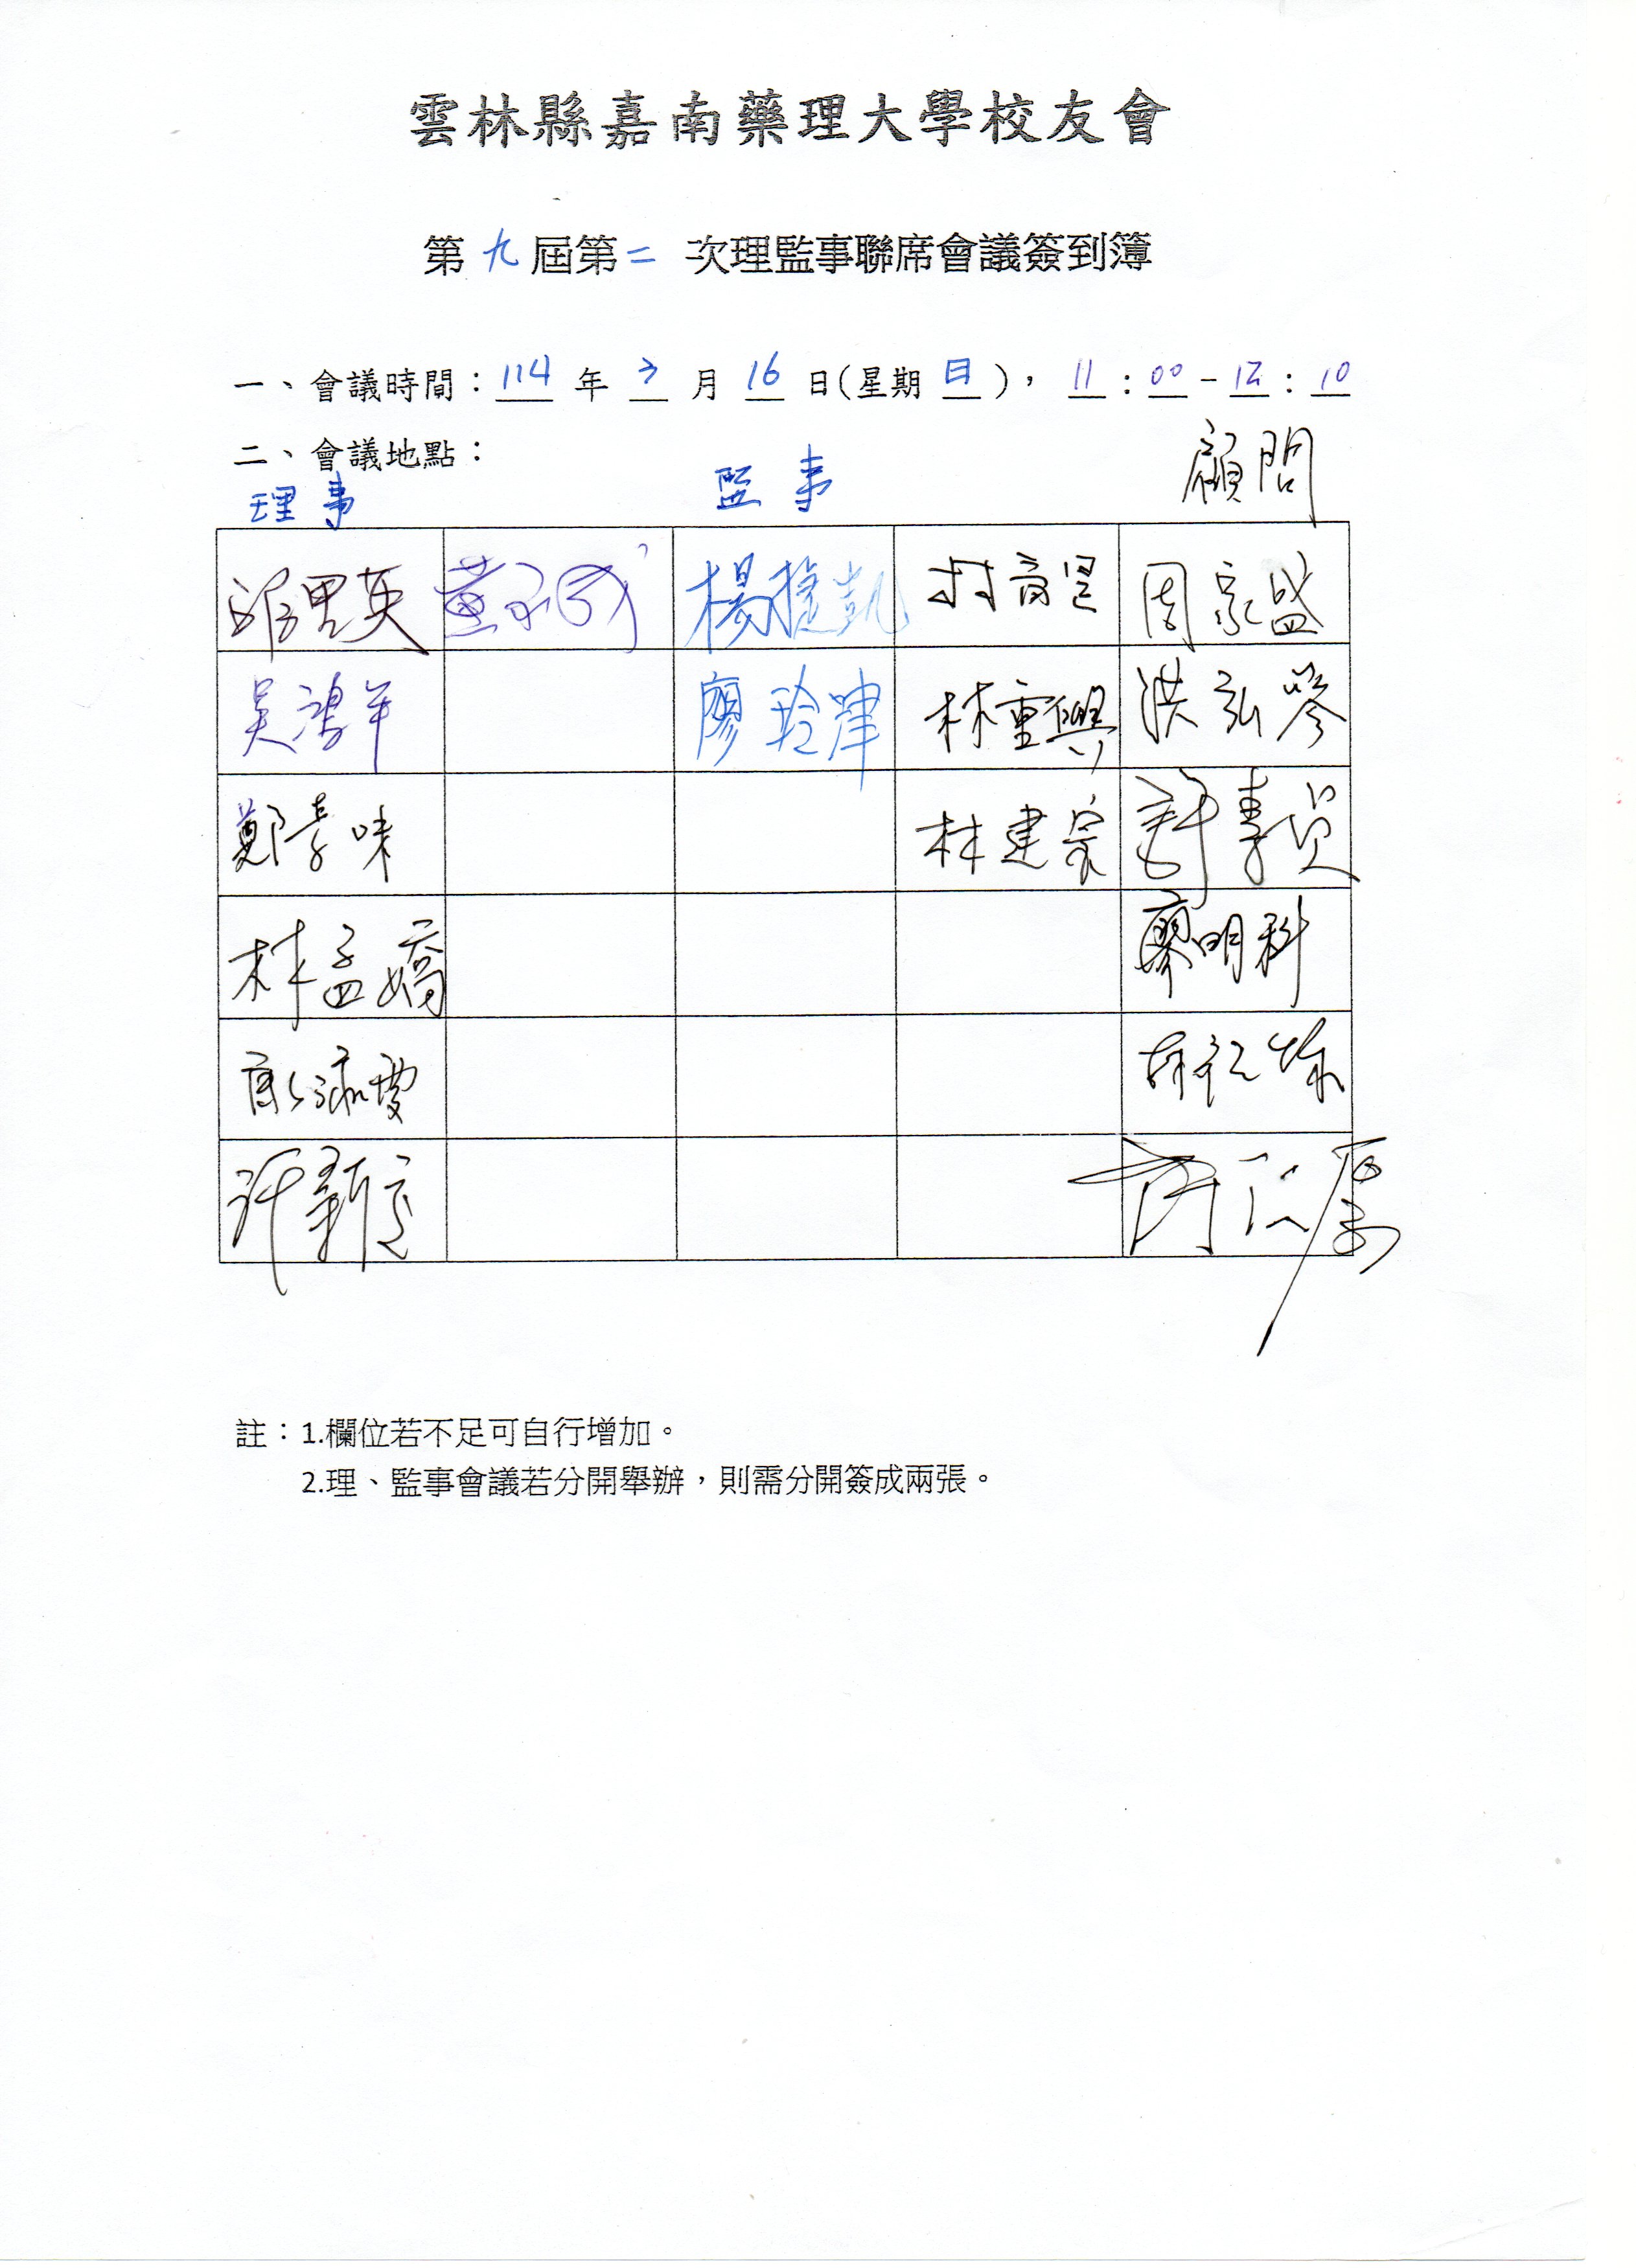 雲林縣嘉南藥理大學校友會
第 九 屆第 二 次理監事聯席會議簽到簿
一、會議時間：114 年 3 月 16 日(星期 日 )， 11 : 00 - 12 : 10
二、會議地點：
理事 監事 顧問
英 楊捷凱 周家盛
吳 廖玲 林重興 洪弘
鄭素味 林建宗 許
林孟嬌 廖明科
許新
註：1.欄位若不足可自行增加。
2.理、監事會議若分開舉辦，則需分開簽成兩張。